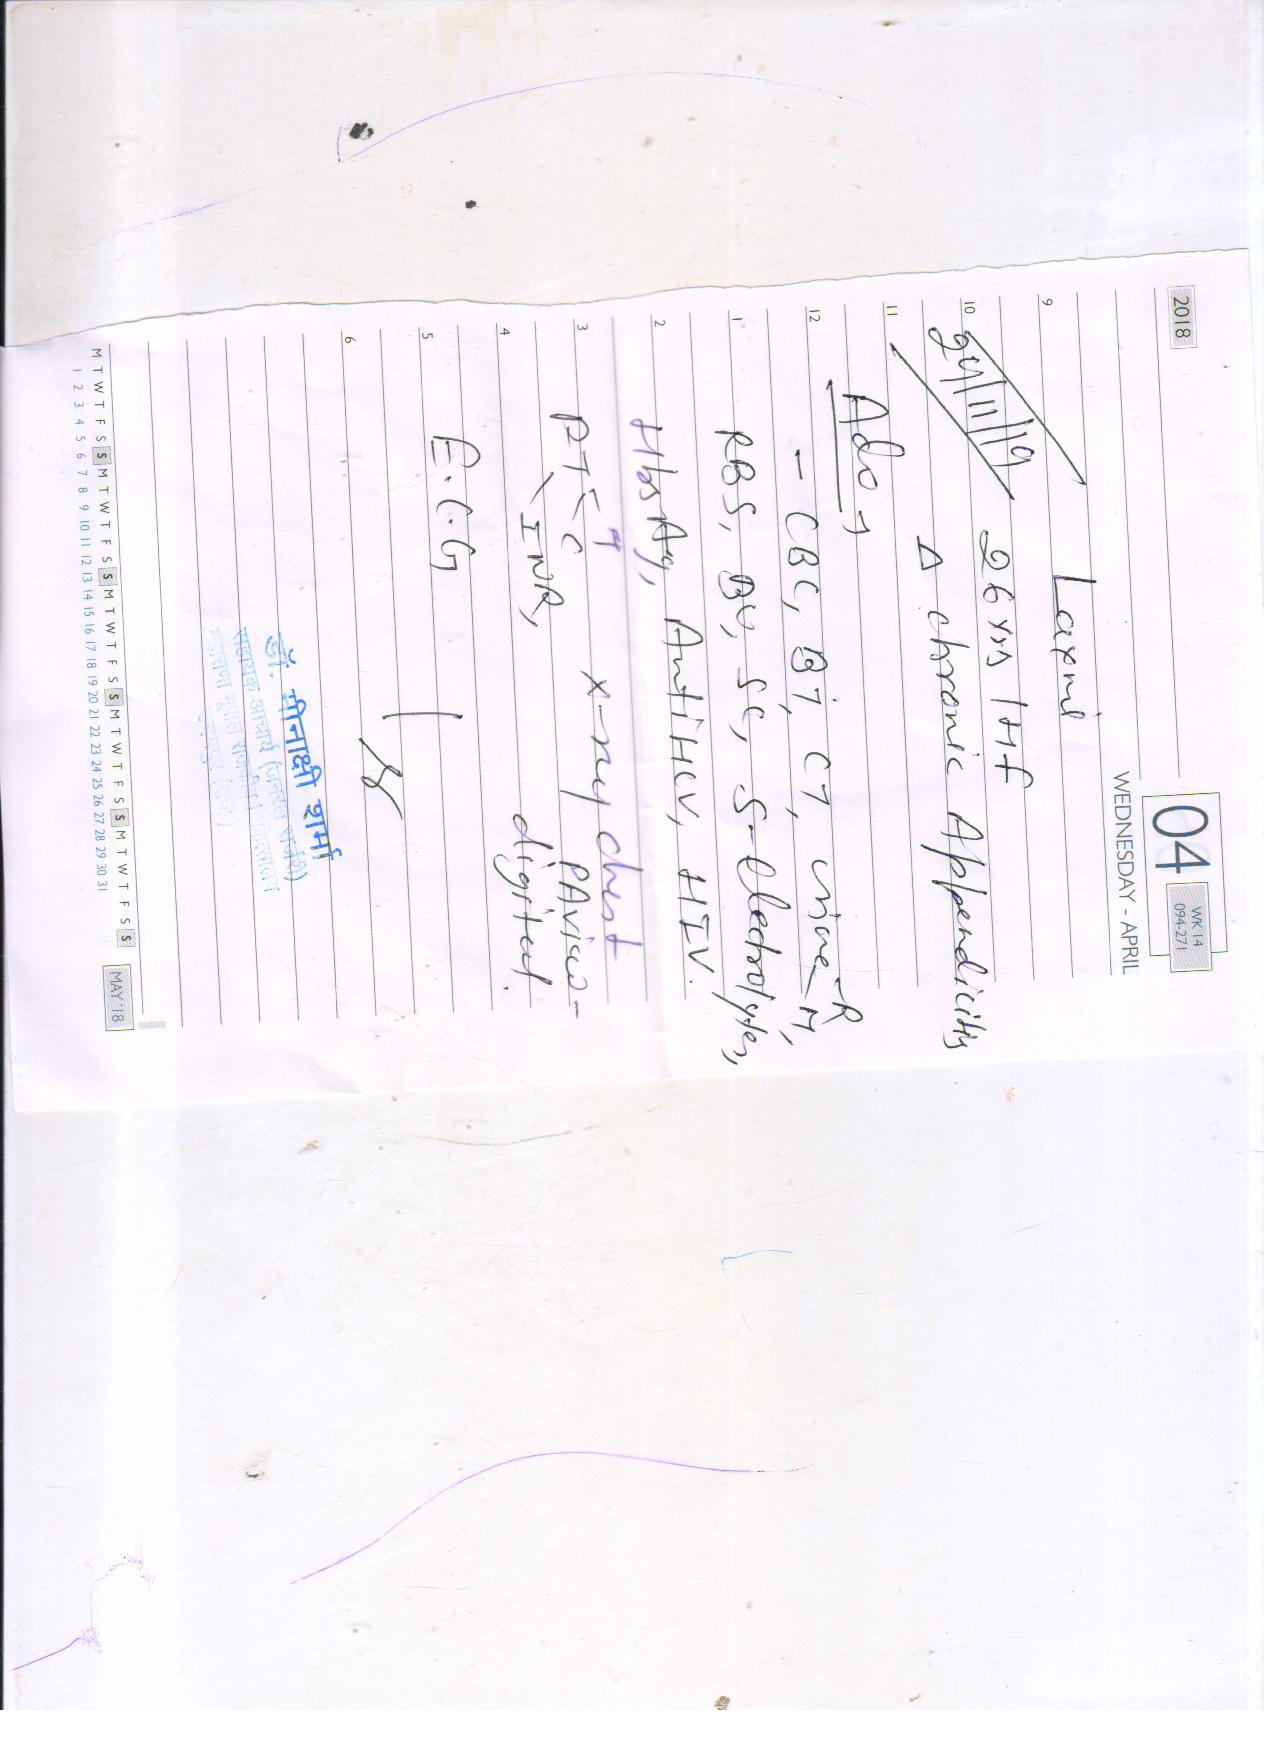 2018
04
WK 14
094-271
WEDNESDAY - APRIL
9
Laxmi
10
24/11/19
26 yrs / H f
Δ chronic Appendicitis
11
Ado →
12
- CBC, BT, CT, urine - R
M,
1
RBS, BU, SC, S-Electrolytes,
2
HbsAg, Anti HCV, HIV.
3
PT
C
INR,
X-ray chest
PA view -
digital.
4
5
E.C.G
6
डॉ. मीनाक्षी शर्मा
सहायक आचार्य (जनरल सर्जरी)
M T W T F S S M T W T F S S M T W T F S S M T W T F S S M T W T F S S
1 2 3 4 5 6 7 8 9 10 11 12 13 14 15 16 17 18 19 20 21 22 23 24 25 26 27 28 29 30 31
MAY '18